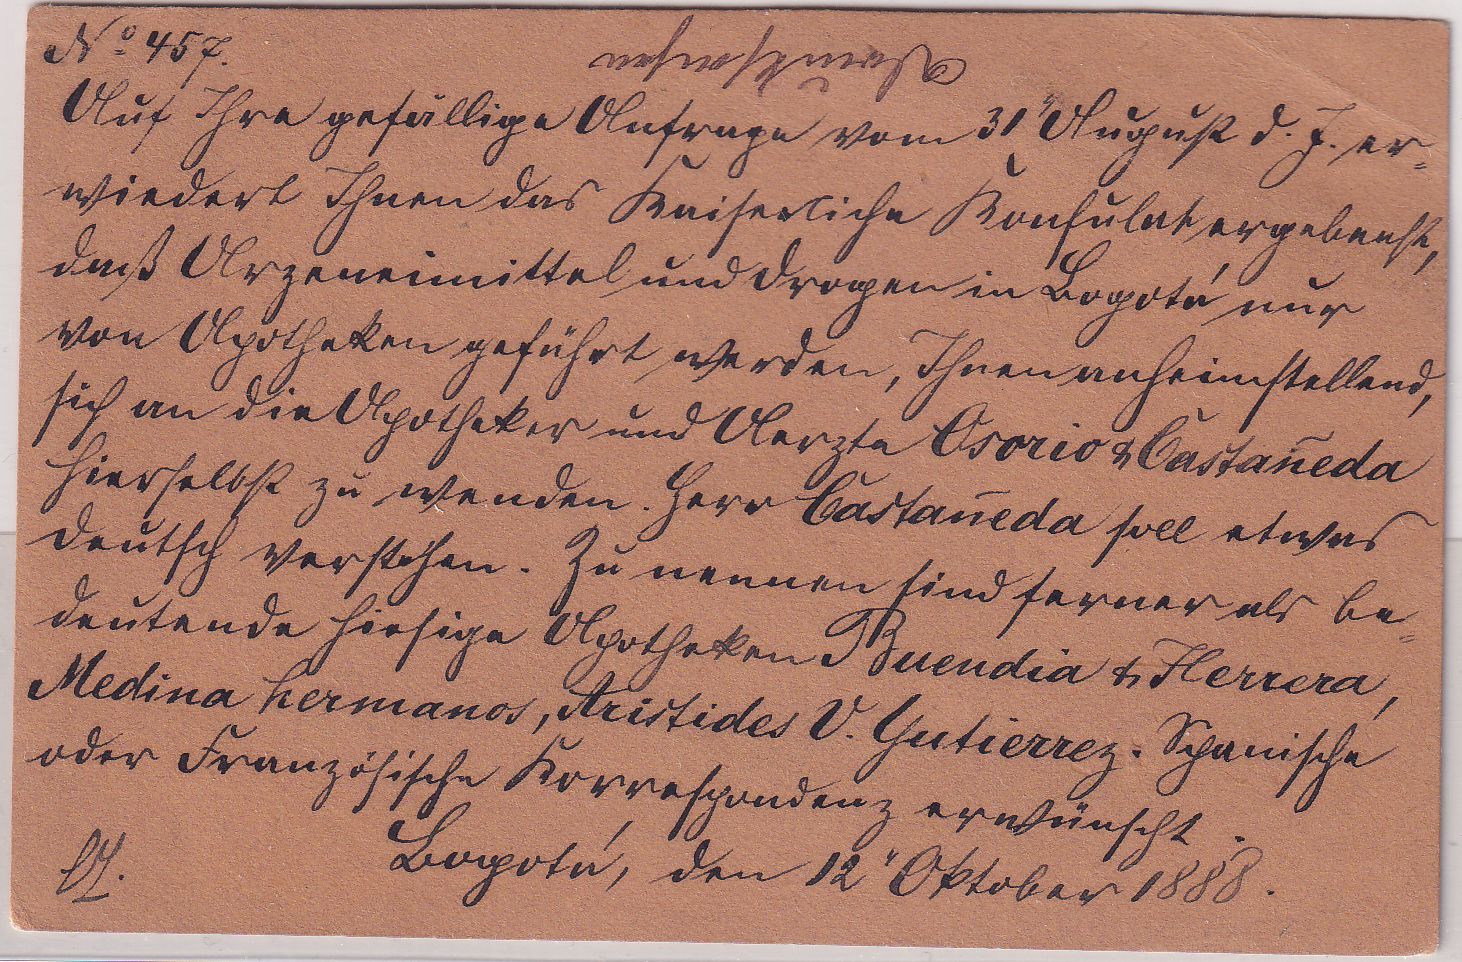 No 457.
Auf Ihre gefällige Anfrage vom 31" August d. J. er-
wiedert Ihnen das Kaiserliche Konsulat ergebenst,
daß Arzeneimittel und Drogen in Bogotá nur
von Apotheken geführt werden, Ihnen anheimstellend,
sich an die Apotheker und Aerzte Osorio & Castañeda
hierselbst zu wenden. Herr Castañeda soll etwas
deutsch verstehen. Zu nennen sind ferner als be-
deutende hiesige Apotheken Buendia & Herrera,
Medina hermanos, Aristides V. Gutierrez. Spanische
oder Französische Korrespondenz erwünscht.
Bogotá, den 12" Oktober 1888.